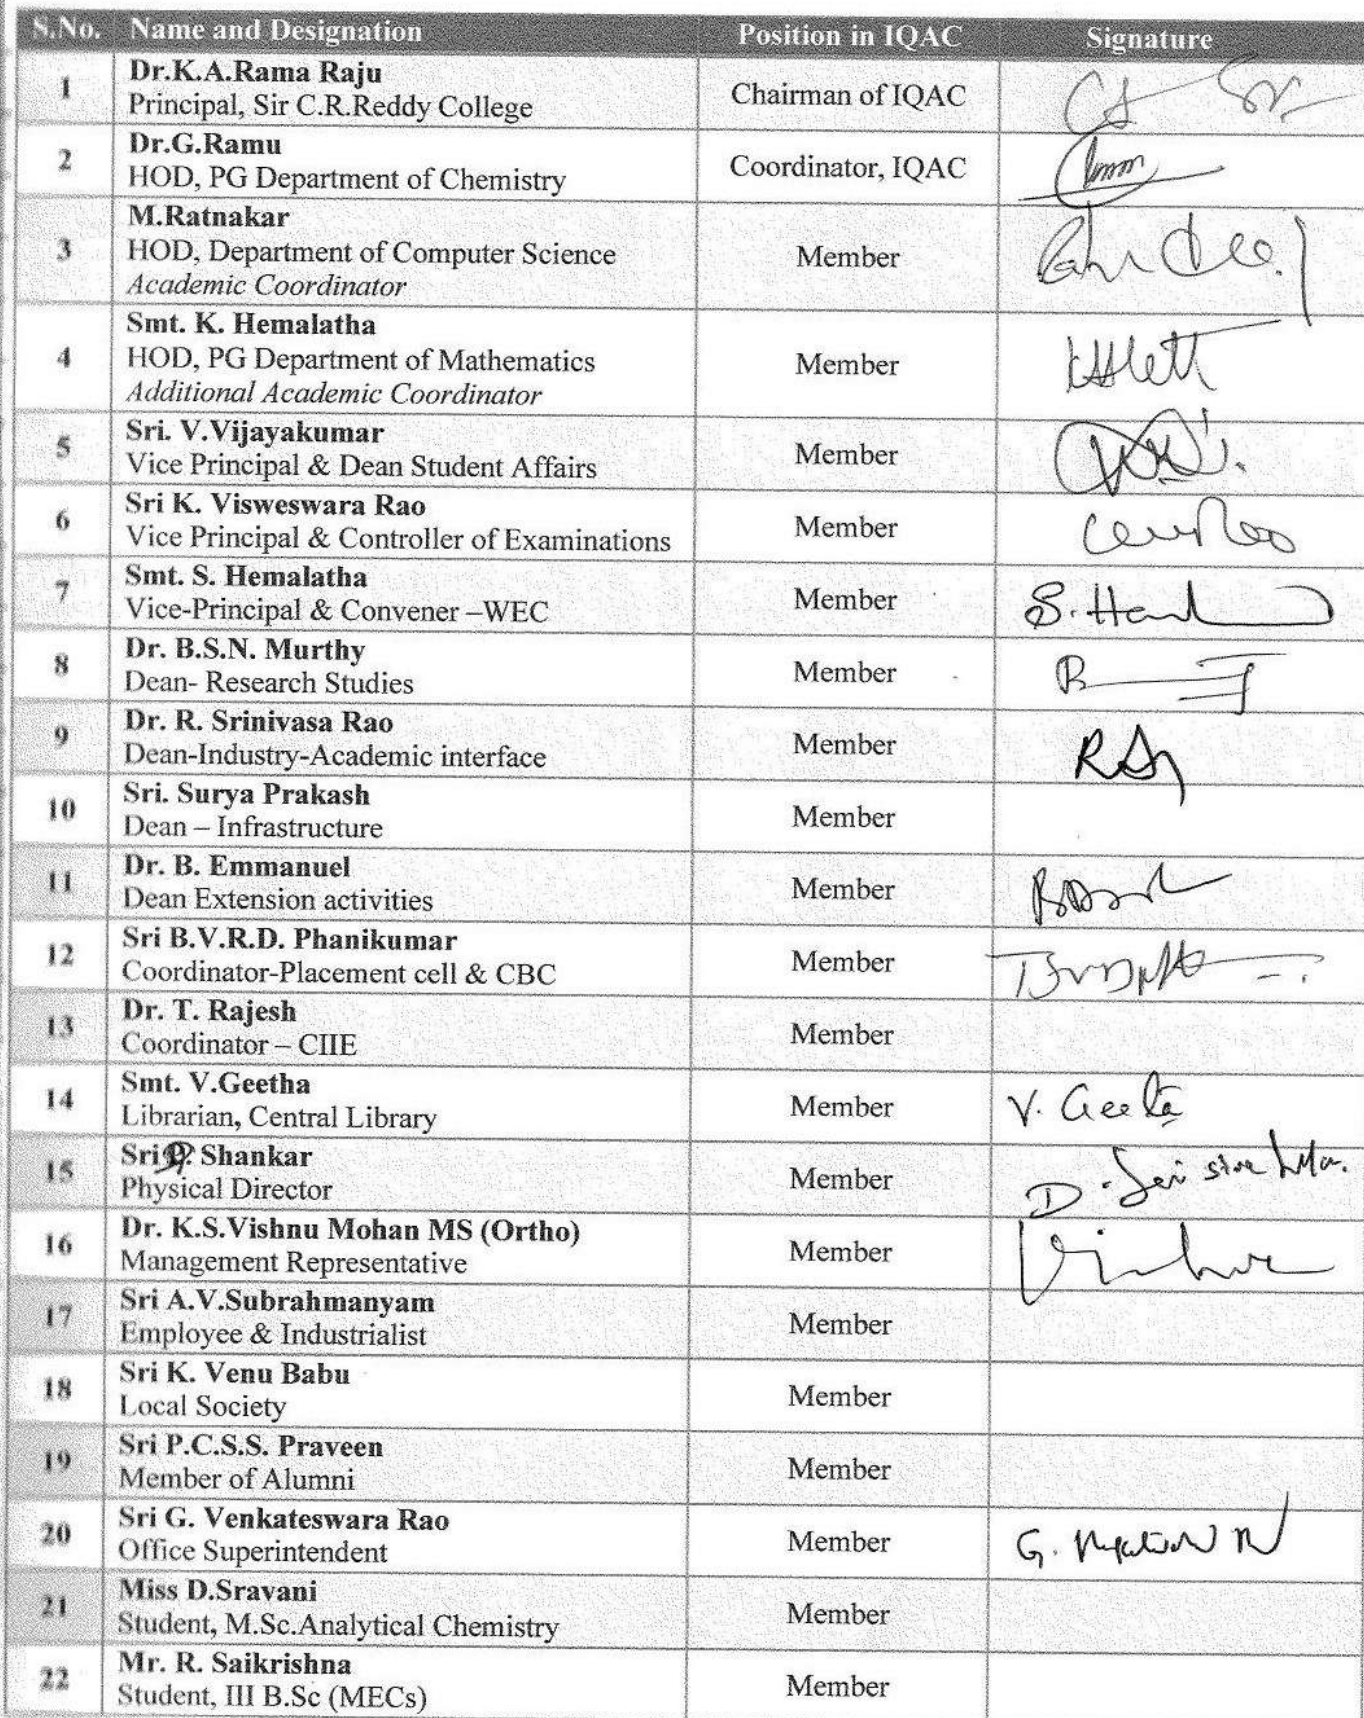 S.No. Name and Designation Position in IQAC Signature
1 Dr.K.A.Rama Raju
Principal, Sir C.R.Reddy College Chairman of IQAC
2 Dr.G.Ramu
HOD, PG Department of Chemistry Coordinator, IQAC
3 M.Ratnakar
HOD, Department of Computer Science Member
Academic Coordinator
4 Smt. K. Hemalatha
HOD, PG Department of Mathematics Member
Additional Academic Coordinator
5 Sri. V.Vijayakumar
Vice Principal & Dean Student Affairs Member
6 Sri K. Visweswara Rao
Vice Principal & Controller of Examinations Member
7 Smt. S. Hemalatha
Vice-Principal & Convener –WEC Member
8 Dr. B.S.N. Murthy
Dean- Research Studies Member
9 Dr. R. Srinivasa Rao
Dean-Industry-Academic interface Member
10 Sri. Surya Prakash
Dean – Infrastructure Member
11 Dr. B. Emmanuel
Dean Extension activities Member
12 Sri B.V.R.D. Phanikumar
Coordinator-Placement cell & CBC Member
13 Dr. T. Rajesh
Coordinator – CIIE Member
14 Smt. V.Geetha
Librarian, Central Library Member V. Geeta
15 Sri Shankar
Physical Director Member
16 Dr. K.S.Vishnu Mohan MS (Ortho)
Management Representative Member
17 Sri A.V.Subrahmanyam
Employee & Industrialist Member
18 Sri K. Venu Babu
Local Society Member
19 Sri P.C.S.S. Praveen
Member of Alumni Member
20 Sri G. Venkateswara Rao
Office Superintendent Member
21 Miss D.Sravani
Student, M.Sc.Analytical Chemistry Member
22 Mr. R. Saikrishna
Student, III B.Sc (MECs) Member